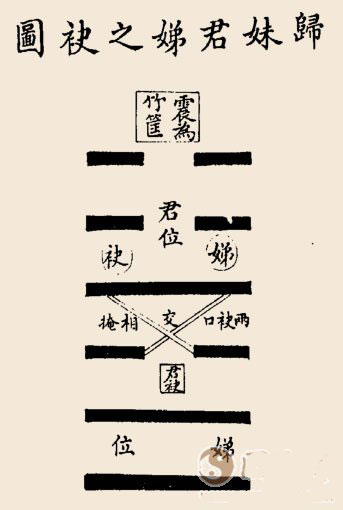 歸妹君娣之袂圖
震為
竹筐
君位
娣 袂
兩袂口 交 相掩
君袂
娣 位